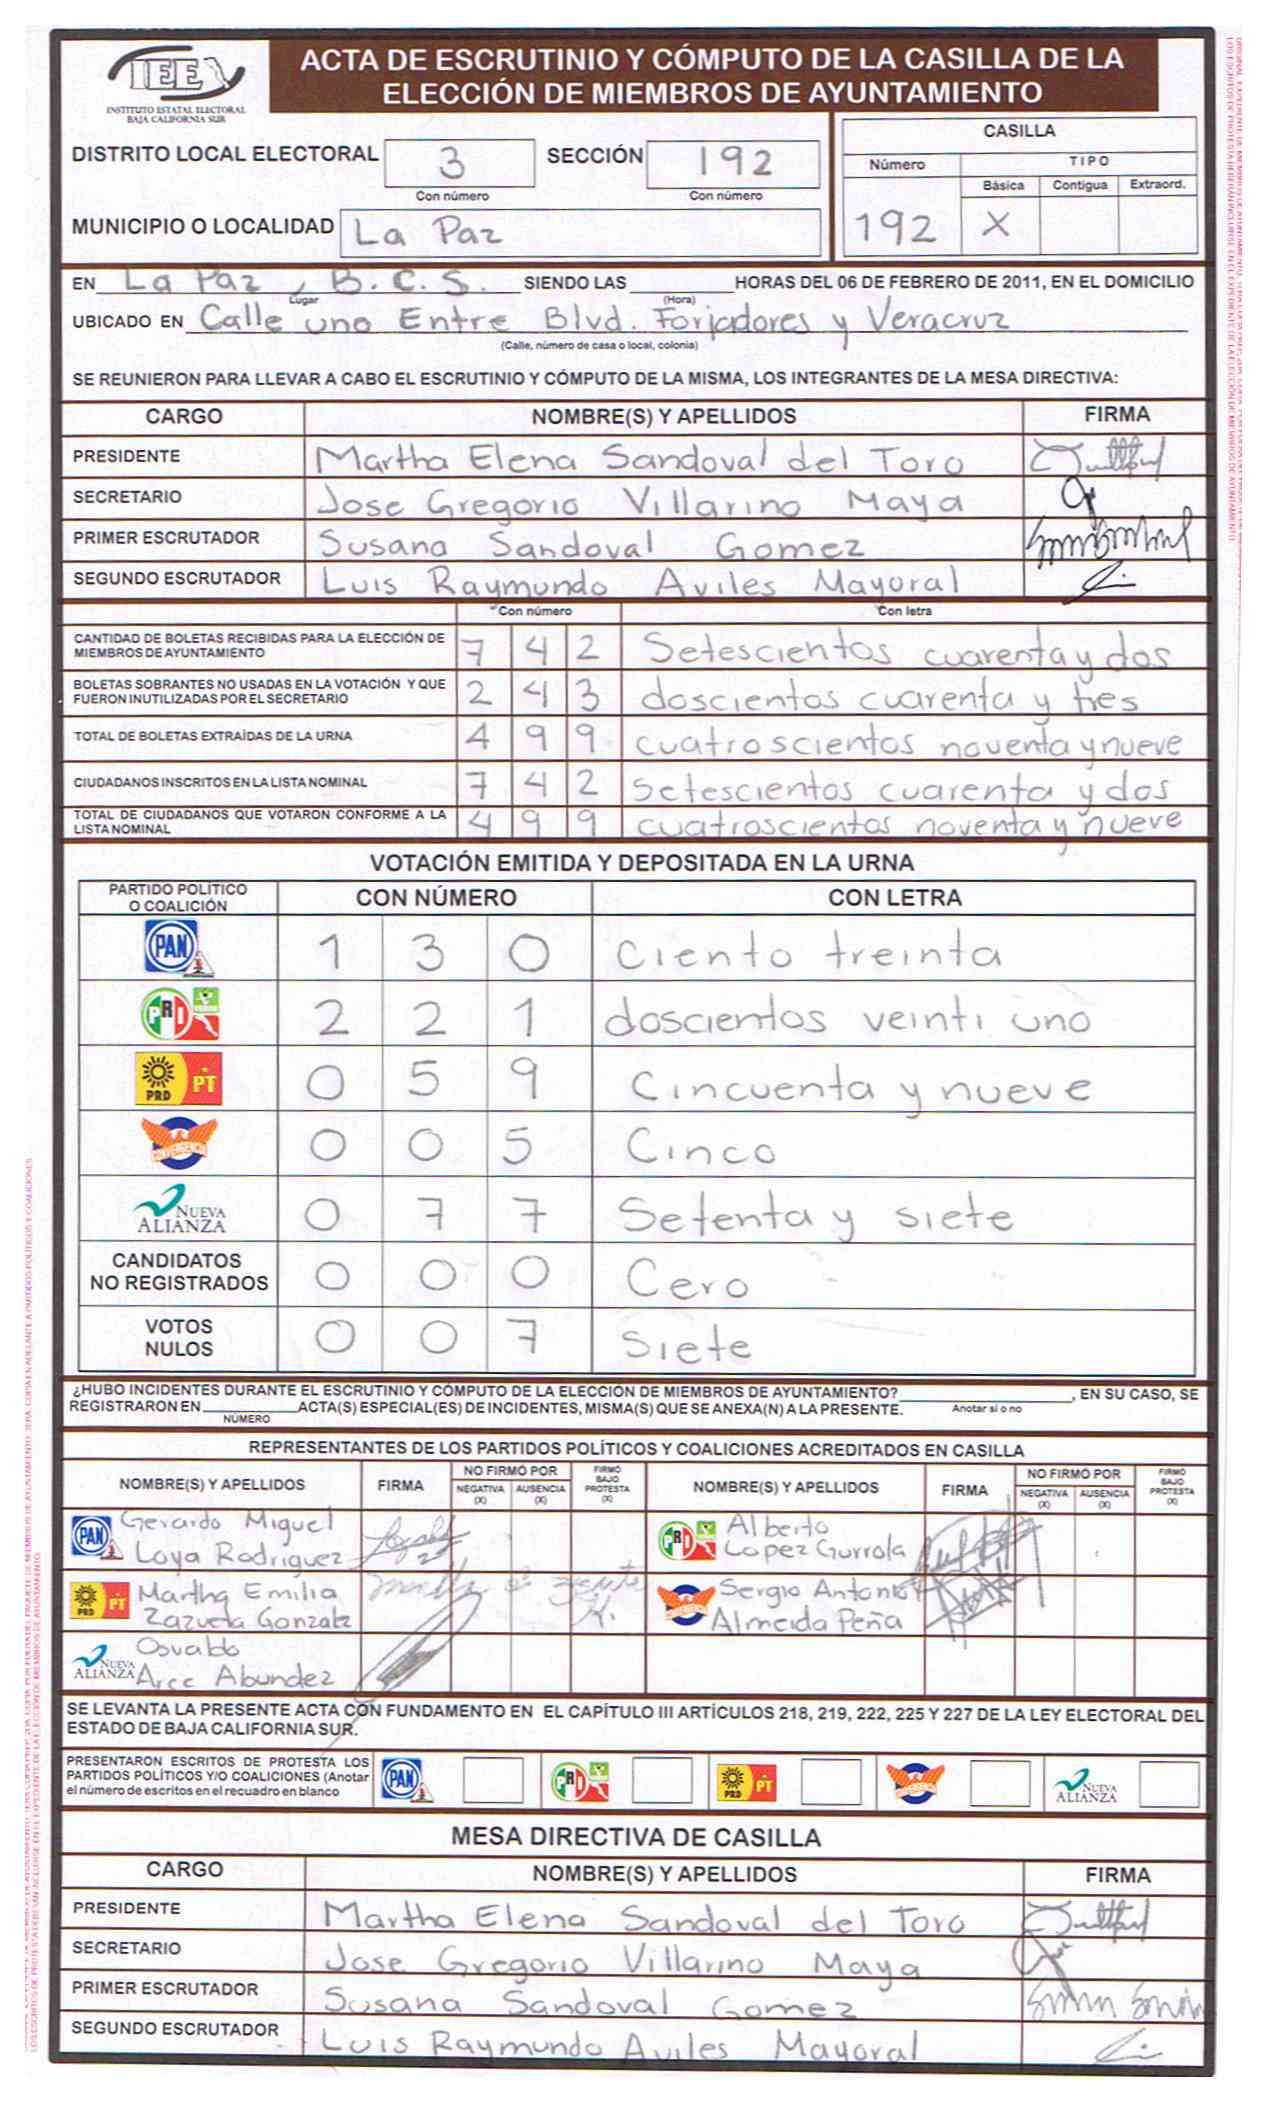 IEEX
INSTITUTO ESTATAL ELECTORAL
BAJA CALIFORNIA SUR
ACTA DE ESCRUTINIO Y CÓMPUTO DE LA CASILLA DE LA
ELECCIÓN DE MIEMBROS DE AYUNTAMIENTO
DISTRITO LOCAL ELECTORAL 3 SECCIÓN 192
Con número Con número
MUNICIPIO O LOCALIDAD La Paz
CASILLA
Número TIPO
Básica Contigua Extraord.
192 X
EN La Paz, B.C.S. SIENDO LAS HORAS DEL 06 DE FEBRERO DE 2011, EN EL DOMICILIO
Lugar (Hora)
UBICADO EN Calle uno Entre Blvd. Forjadores y Veracruz
(Calle, número de casa o local, colonia)
SE REUNIERON PARA LLEVAR A CABO EL ESCRUTINIO Y CÓMPUTO DE LA MISMA, LOS INTEGRANTES DE LA MESA DIRECTIVA:
CARGO NOMBRE(S) Y APELLIDOS FIRMA
PRESIDENTE Martha Elena Sandoval del Toro
SECRETARIO Jose Gregorio Villarino Maya
PRIMER ESCRUTADOR Susana Sandoval Gomez
SEGUNDO ESCRUTADOR Luis Raymundo Aviles Mayoral
Con número Con letra
CANTIDAD DE BOLETAS RECIBIDAS PARA LA ELECCIÓN DE
MIEMBROS DE AYUNTAMIENTO 7 4 2 Setescientos cuarenta y dos
BOLETAS SOBRANTES NO USADAS EN LA VOTACIÓN Y QUE
FUERON INUTILIZADAS POR EL SECRETARIO 2 4 3 doscientos cuarenta y tres
TOTAL DE BOLETAS EXTRAÍDAS DE LA URNA 4 9 9 cuatroscientos noventa y nueve
CIUDADANOS INSCRITOS EN LA LISTA NOMINAL 7 4 2 Setescientos cuarenta y dos
TOTAL DE CIUDADANOS QUE VOTARON CONFORME A LA
LISTA NOMINAL 4 9 9 cuatroscientos noventa y nueve
VOTACIÓN EMITIDA Y DEPOSITADA EN LA URNA
PARTIDO POLÍTICO
O COALICIÓN CON NÚMERO CON LETRA
PAN 1 3 0 Ciento treinta
PRI 2 2 1 doscientos veinti uno
PRD PT 0 5 9 Cincuenta y nueve
CONVERGENCIA 0 0 5 Cinco
NUEVA ALIANZA 0 7 7 Setenta y siete
CANDIDATOS
NO REGISTRADOS 0 0 0 Cero
VOTOS
NULOS 0 0 7 Siete
¿HUBO INCIDENTES DURANTE EL ESCRUTINIO Y CÓMPUTO DE LA ELECCIÓN DE MIEMBROS DE AYUNTAMIENTO? , EN SU CASO, SE
REGISTRARON EN ACTA(S) ESPECIAL(ES) DE INCIDENTES, MISMA(S) QUE SE ANEXA(N) A LA PRESENTE. Anotar sí o no
NÚMERO
REPRESENTANTES DE LOS PARTIDOS POLÍTICOS Y COALICIONES ACREDITADOS EN CASILLA
NOMBRE(S) Y APELLIDOS FIRMA NO FIRMÓ POR NEGATIVA (X) AUSENCIA (X) FIRMÓ BAJO PROTESTA (X) NOMBRE(S) Y APELLIDOS FIRMA NO FIRMÓ POR NEGATIVA (X) AUSENCIA (X) FIRMÓ BAJO PROTESTA (X)
PAN Gerardo Miguel
Loya Rodriguez
PRI Alberto
Lopez Gurrola
PRD PT Martha Emilia
Zazueta Gonzalz
CONVERGENCIA Sergio Antonio
Almeida Peña
NUEVA ALIANZA Osvaldo
Arce Abundez
SE LEVANTA LA PRESENTE ACTA CON FUNDAMENTO EN EL CAPÍTULO III ARTÍCULOS 218, 219, 222, 225 Y 227 DE LA LEY ELECTORAL DEL
ESTADO DE BAJA CALIFORNIA SUR.
PRESENTARON ESCRITOS DE PROTESTA LOS
PARTIDOS POLÍTICOS Y/O COALICIONES (Anotar
el número de escritos en el recuadro en blanco
PAN PRI PRD PT CONVERGENCIA NUEVA ALIANZA
MESA DIRECTIVA DE CASILLA
CARGO NOMBRE(S) Y APELLIDOS FIRMA
PRESIDENTE Martha Elena Sandoval del Toro
SECRETARIO Jose Gregorio Villarino Maya
PRIMER ESCRUTADOR Susana Sandoval Gomez
SEGUNDO ESCRUTADOR Luis Raymundo Aviles Mayoral